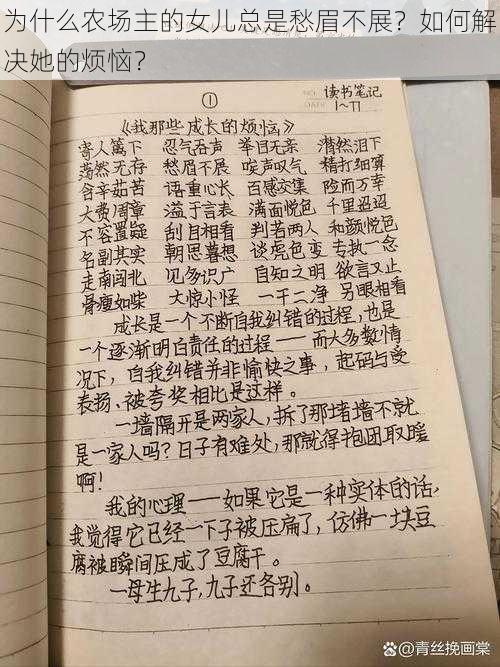 为什么农场主的女儿总是愁眉不展？如何解
决她的烦恼？
①
NO. 读书笔记
DATE 1~77
《我那些成长的烦恼》
寄人篱下 忍气吞声 举目无亲 潸然泪下
荡然无存 愁眉不展 唉声叹气 精打细算
含辛茹苦 语重心长 百感交集 险而万幸
大费周章 溢于言表 满面悦色 千里迢迢
不容置疑 刮目相看 判若两人 和颜悦色
名副其实 朝思暮想 谈虎色变 专执一念
走南闯北 见多识广 自知之明 欲言又止
骨瘦如柴 大惊小怪 一干二净 另眼相看
成长是一个不断自我纠错的过程,也是
一个逐渐明白责任的过程——而大多数情
况下,自我纠错并非愉快之事,起码与受
表扬、被夸奖相比是这样。
一墙隔开是两家人,拆了那堵墙不就
是一家人吗?日子有难处,那就得抱团取暖
啊!
我的心理——如果它是一种实体的话,
我觉得它已经一下子被压扁了,仿佛一块豆
腐被瞬间压成了豆腐干。
一母生九子,九子还各别。
Bai百度 @青丝挽画棠